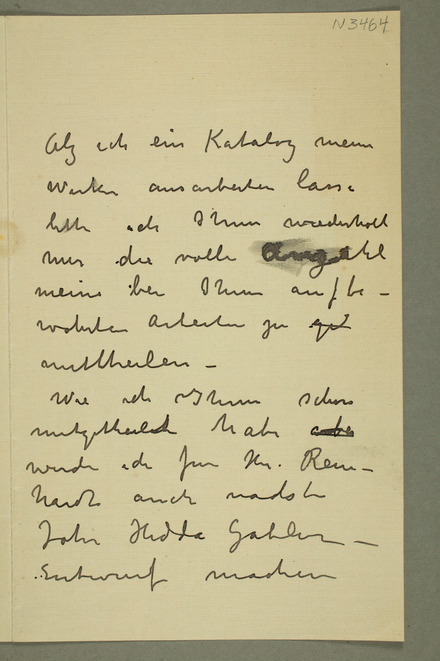 N3464
Als ich ein Katalog meine
Werke ausarbeiten lasse
bitte ich Ihnen wiederholt
mir die volle Anzahl
meine bei Ihnen aufbe-
wahrten Arbeiten zu
mittheilen -
Wie ich Ihnen schon
mitgetheilt habe
werde ich für Hr. Rein-
hardt auch nächste
Jahr Hedda Gabler -
Entwurf machen